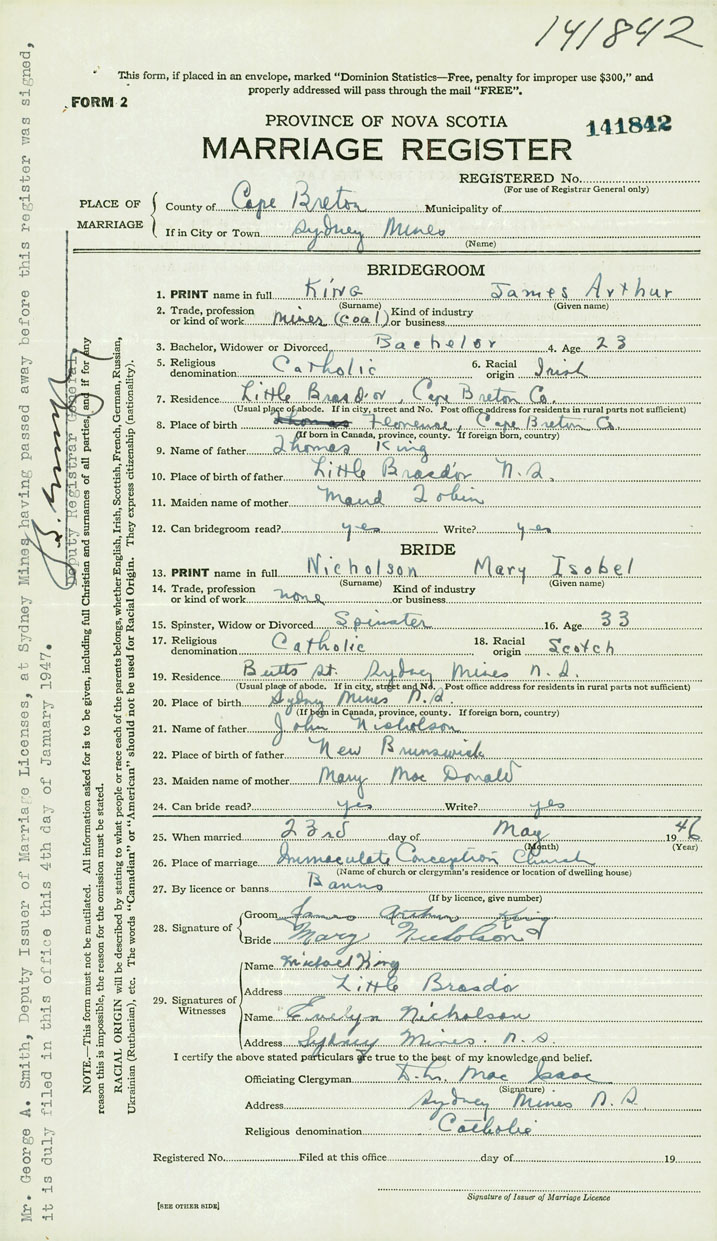 141842
This form, if placed in an envelope, marked "Dominion Statistics—Free, penalty for improper use $300," and
properly addressed will pass through the mail "FREE".
FORM 2
PROVINCE OF NOVA SCOTIA
141842
MARRIAGE REGISTER
REGISTERED No.
(For use of Registrar General only)
PLACE OF MARRIAGE
County of Cape Breton Municipality of
If in City or Town Sydney Mines
(Name)
BRIDEGROOM
1. PRINT name in full King James Arthur
(Surname) (Given name)
2. Trade, profession or kind of work Miner (coal) Kind of industry or business
3. Bachelor, Widower or Divorced Bachelor 4. Age 23
5. Religious denomination Catholic 6. Racial origin Irish
7. Residence Little Brasd'or, Cape Breton Co.
(Usual place of abode. If in city, street and No. Post office address for residents in rural parts not sufficient)
8. Place of birth Thomas Florence, Cape Breton Co.
(If born in Canada, province, county. If foreign born, country)
9. Name of father Thomas King
10. Place of birth of father Little Brasd'or N.S.
11. Maiden name of mother Maud Tobin
12. Can bridegroom read? yes Write? yes
BRIDE
13. PRINT name in full Nicholson Mary Isobel
(Surname) (Given name)
14. Trade, profession or kind of work none Kind of industry or business
15. Spinster, Widow or Divorced Spinster 16. Age 33
17. Religious denomination Catholic 18. Racial origin Scotch
19. Residence Butts St. Sydney Mines N.S.
(Usual place of abode. If in city, street and No. Post office address for residents in rural parts not sufficient)
20. Place of birth Sydney Mines N.S.
(If born in Canada, province, county. If foreign born, country)
21. Name of father John Nicholson
22. Place of birth of father New Brunswick
23. Maiden name of mother Mary MacDonald
24. Can bride read? yes Write? yes
25. When married 23rd day of May 1946
(Month) (Year)
26. Place of marriage Immaculate Conception Church
(Name of church or clergyman's residence or location of dwelling house)
27. By licence or banns Banns
(If by licence, give number)
28. Signature of
Groom James Arthur King
Bride Mary Nicholson
29. Signatures of Witnesses
Name Michael King
Address Little Brasdor
Name Evelyn Nicholson
Address Sydney Mines. N.S.
I certify the above stated particulars are true to the best of my knowledge and belief.
Officiating Clergyman Mac Isaac
(Signature)
Address Sydney Mines N.S.
Religious denomination Catholic
Registered No. Filed at this office day of 19
Signature of Issuer of Marriage Licence
[SEE OTHER SIDE]
Mr. George A. Smith, Deputy Issuer of Marriage Licenses, at Sydney Mines having passed away before this register was signed,
it is duly filed in this office this 4th day of January 1947.
Deputy Registrar General
NOTE.—This form must not be mutilated. All information asked for is to be given, including full Christian and surnames of all parties, and if for any
reason this is impossible, the reason for the omission must be stated.
RACIAL ORIGIN will be described by stating to what people or race each of the parents belongs, whether English, Irish, Scottish, French, German, Russian,
Ukrainian (Ruthenian), etc. The words "Canadian" or "American" should not be used for Racial Origin. They express citizenship (nationality).